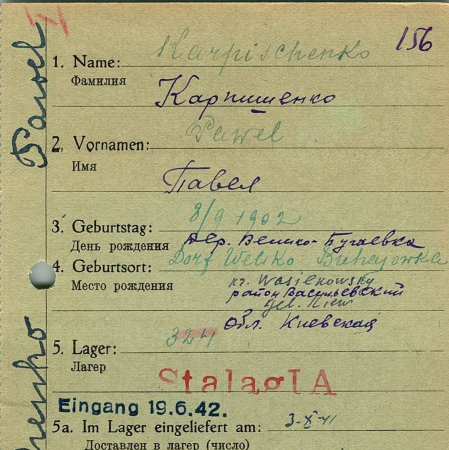 156
Karpischenko
1. Name:
Фамилия
Карпишенко
Pawel
2. Vornamen:
Имя
Павел
8/9 1902
3. Geburtstag:
День рождения
дер. Велико-Бугаевка
Dorf Weliko Buhajowka
4. Geburtsort:
Место рождения
kr. Wasilkowsky
район Васильевский
Geb. Kiew
обл. Киевская
324
5. Lager:
Лагер
Stalag IA
Eingang 19.6.42.
5a. Im Lager eingeliefert am: 3-X-41
Доставлен в лагер (число)
Pawel
enko